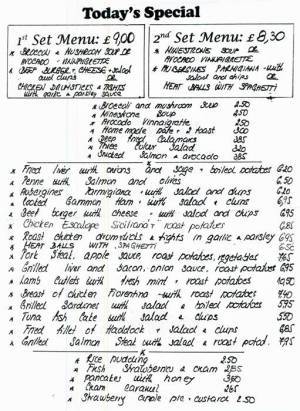 Today's Special
1st Set Menu: £9,00
* BROCCOLI & MUSHROOM SOUP OR
AVOCADO VINNAIGRETTE
* BEEF BURGER + CHEESE + salad
and chips OR
CHICKEN DRUMSTICKS & THIGHTS
with garlic & parsley sauce
2nd Set Menu: £8,30
* MINESTRONE SOUP OR
AVOCADO VINNAIGRETTE
* AUBERGINES PARMIGIANA with
salad and chips OR
MEAT BALLS WITH SPAGHETTI
* Broccoli and mushroom soup 2.50
* Minestrone Soup 2.50
* Avocado Vinnaigrette 2.50
* Home made pate + 2 toast 3.00
* Deep fried Calamars 3.85
* Three Color Salad 3.20
* Smoked Salmon & avocado 3.85
* Fried liver with onions and sage + boiled potatoes 6.20
* Penne with Salmon and olives 6.50
* Aubergines Parmigiana with salad and chips 6.20
* Cooked Gammon Ham with salad & chips 6.95
* Beef burger with cheese with salad and chips 6.95
* Chicken Escalope Siciliana + roast potatoes 6.85
* Roast chicken drumsticks & thights in garlic & parsley 6.95
* MEAT BALLS WITH SPAGHETTI
* Pork Steak, apple sauce, roast potatoes, vegetables
* Grilled liver and bacon, onion sauce, roast potatoes 6.95
* Lamb Cutlets with fresh mint + roast potatoes
* Breast of chicken Fiorentina with roast potatoes
* Grilled Sardines with salad & boiled potatoes
* Tuna Fish Cake with salad & chips
* Fried fillet of Haddock + salad & chips
* Grilled Salmon Steak with salad + roast potatoes
* Rice pudding 2.50
* Fresh Strawberries & cream 2.85
* pancakes with honey
* Cream Caramel
* Strawberry apple pie + custard 2.95